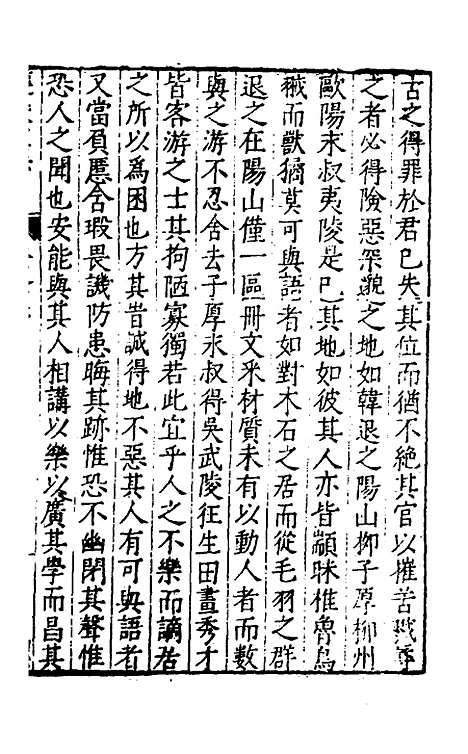 古之得罪於君已失其位而猶不絕其官以摧苦戮辱
之者必得險惡深䫉之地如韓退之陽山柳子厚柳州
歐陽永叔夷陵是已其地如彼其人亦皆顓眛椎魯鳥
穢而獸猾莫可與語者如對木石之居而從毛羽之群
退之在陽山僅一區冊文采材質未有以動人者而數
與之游不忍舍去子厚永叔得吳武陵征生田畫秀才
皆客游之士其拘陋寡獨若此宜乎人之不樂而謫居
之所以為困也方其昔誠得地不惡其人有可與語者
又當負慝含瑕畏譏防患晦其跡惟恐不幽閉其聲惟
恐人之聞也安能與其人相講以樂以廣其學而昌其